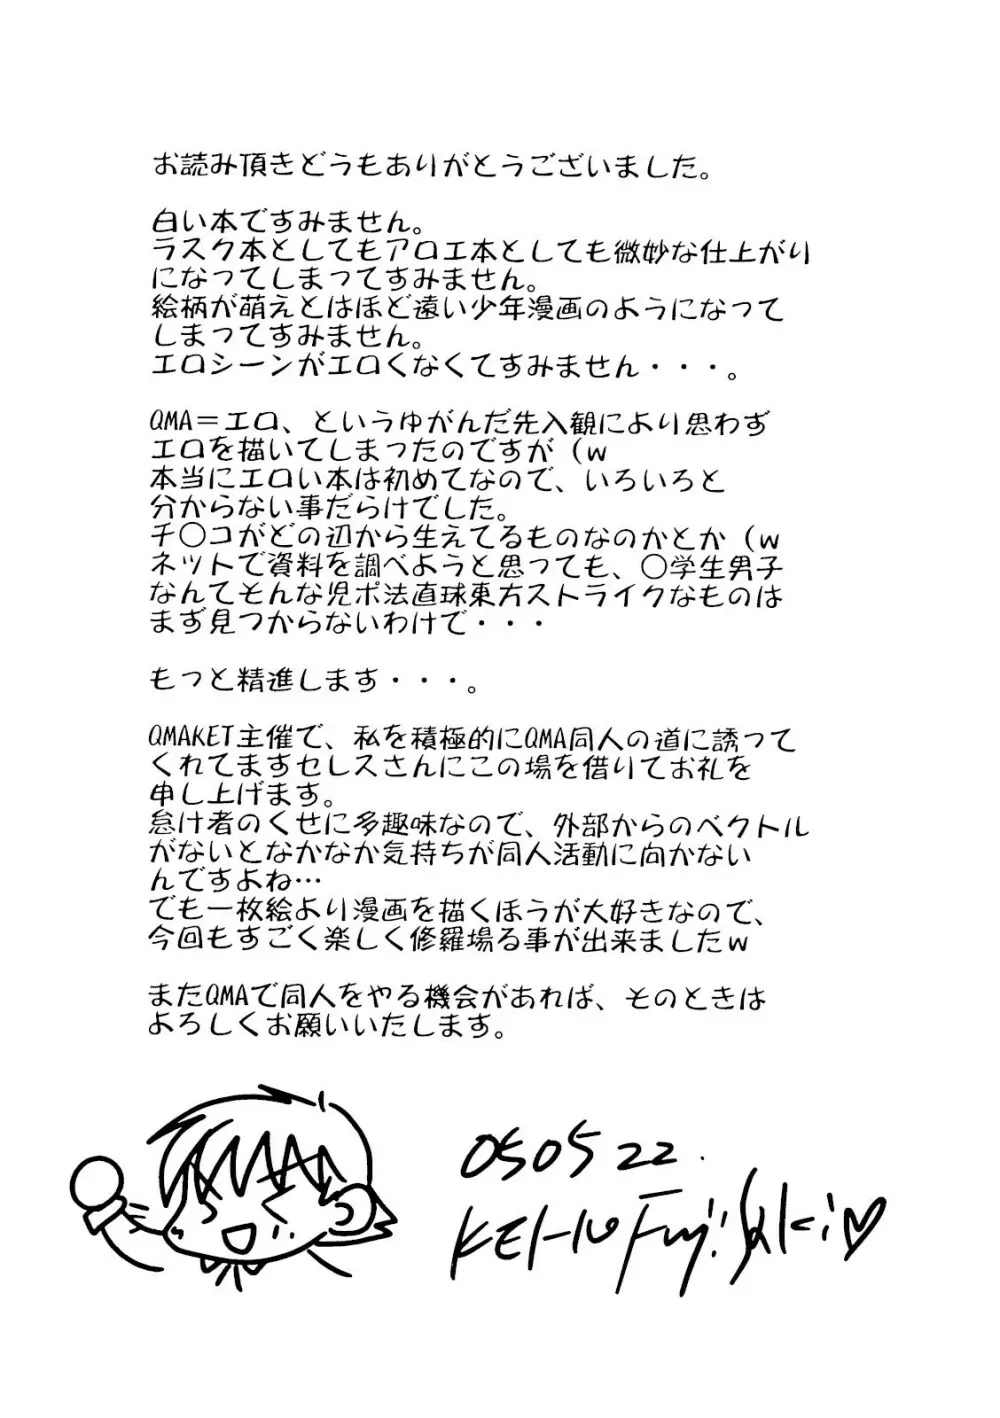 お読み頂きどうもありがとうございました。
白い本ですみません。
ラスク本としてもアロエ本としても微妙な仕上がり
になってしまってすみません。
絵柄が萌えとはほど遠い少年漫画のようになって
しまってすみません。
エロシーンがエロくなくてすみません・・・。
QMA＝エロ、というゆがんだ先入観により思わず
エロを描いてしまったのですが（ｗ
本当にエロい本は初めてなので、いろいろと
分からない事だらけでした。
チ〇コがどの辺から生えてるものなのかとか（ｗ
ネットで資料を調べようと思っても、〇学生男子
なんてそんな児ポ法直球東方ストライクなものは
まず見つからないわけで・・・
もっと精進します・・・。
QMAKET主催で、私を積極的にQMA同人の道に誘って
くれてますセレスさんにこの場を借りてお礼を
申し上げます。
怠け者のくせに多趣味なので、外部からのベクトル
がないとなかなか気持ちが同人活動に向かない
んですよね…
でも一枚絵より漫画を描くほうが大好きなので、
今回もすごく楽しく修羅場る事が出来ましたｗ
またQMAで同人をやる機会があれば、そのときは
よろしくお願いいたします。
050522.
Fujisaki♡